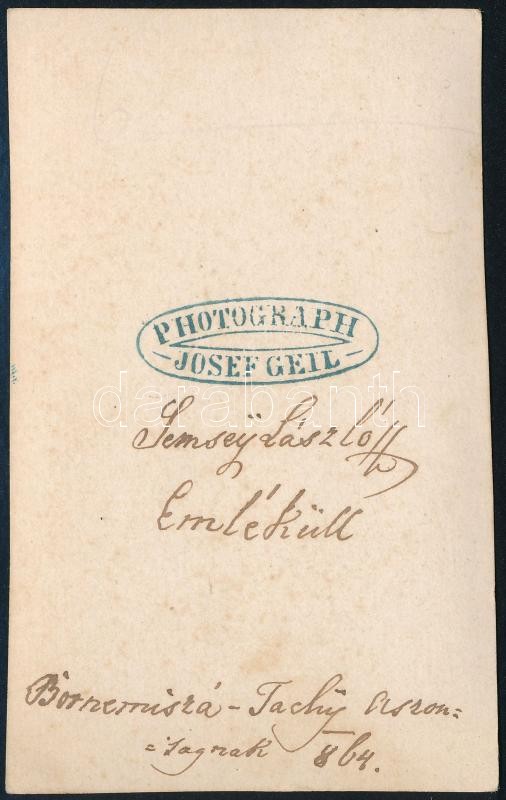 PHOTOGRAPH
JOSEF GEIL
darabanth
Semseÿ László
Emlékűll
Bornemiszá - Tachÿ Aszon=
=sagnak 864.